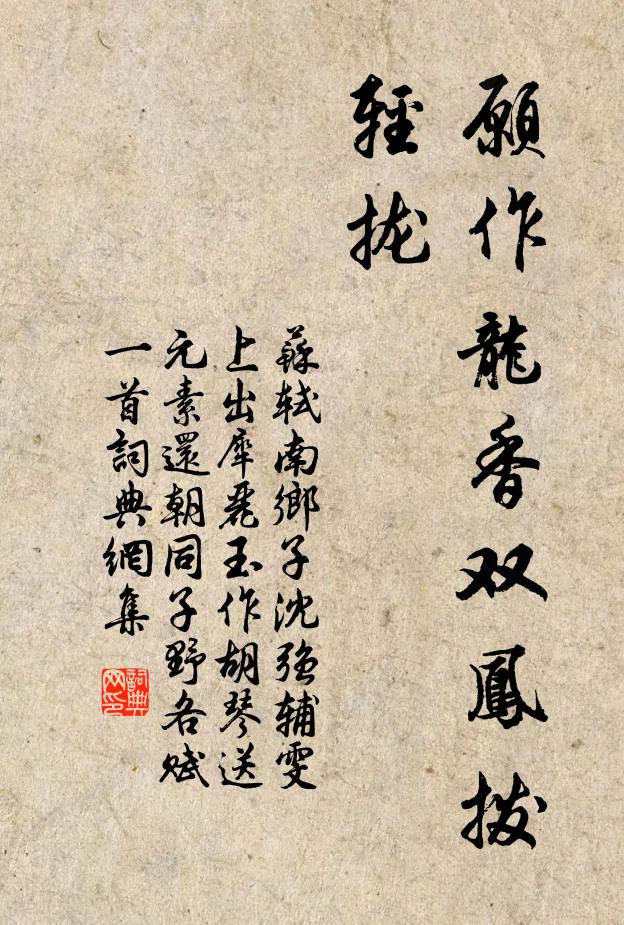 願作龍香双鳳撥
輕拢
蘇軾南鄉子沈强輔雯
上出犀麗玉作胡琴送
元素還朝同子野各賦
一首詞典網集
詞典网印